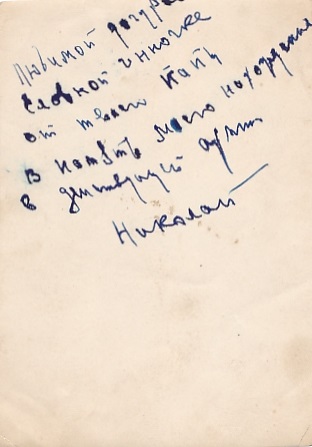 Любимой дочурке
славной Инночке
от твоего папы
в память моего нахождения
в действующей армии
Николай